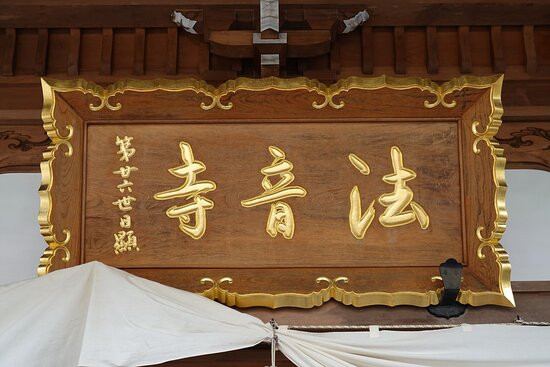 法音寺
第廿六世日顯